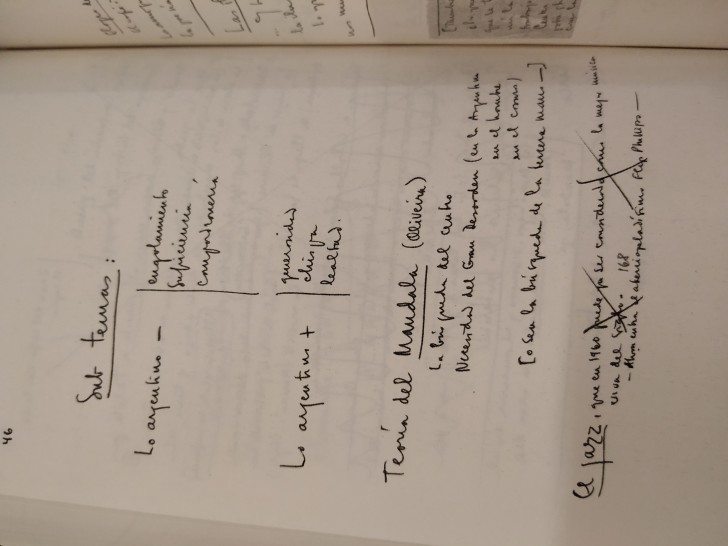 46
Sub temas:
Lo argentino —
engolamiento
Suficiencia
compadronería
Lo argentino +
generosidad
chispa
lealtad.
Teoría del Mandala (Oliveira)
La búsqueda del centro
Necesidad del Gran Desorden (en la Argentina
en el hombre
en el cosmos)
[o sea la búsqueda de la tercera mano —]
El jazz, que en 1960 puede ya ser considerado como la mejor música
viva del siglo.
168
— Ahora entra el aterciopeladísimo Flip Phillips —
Las